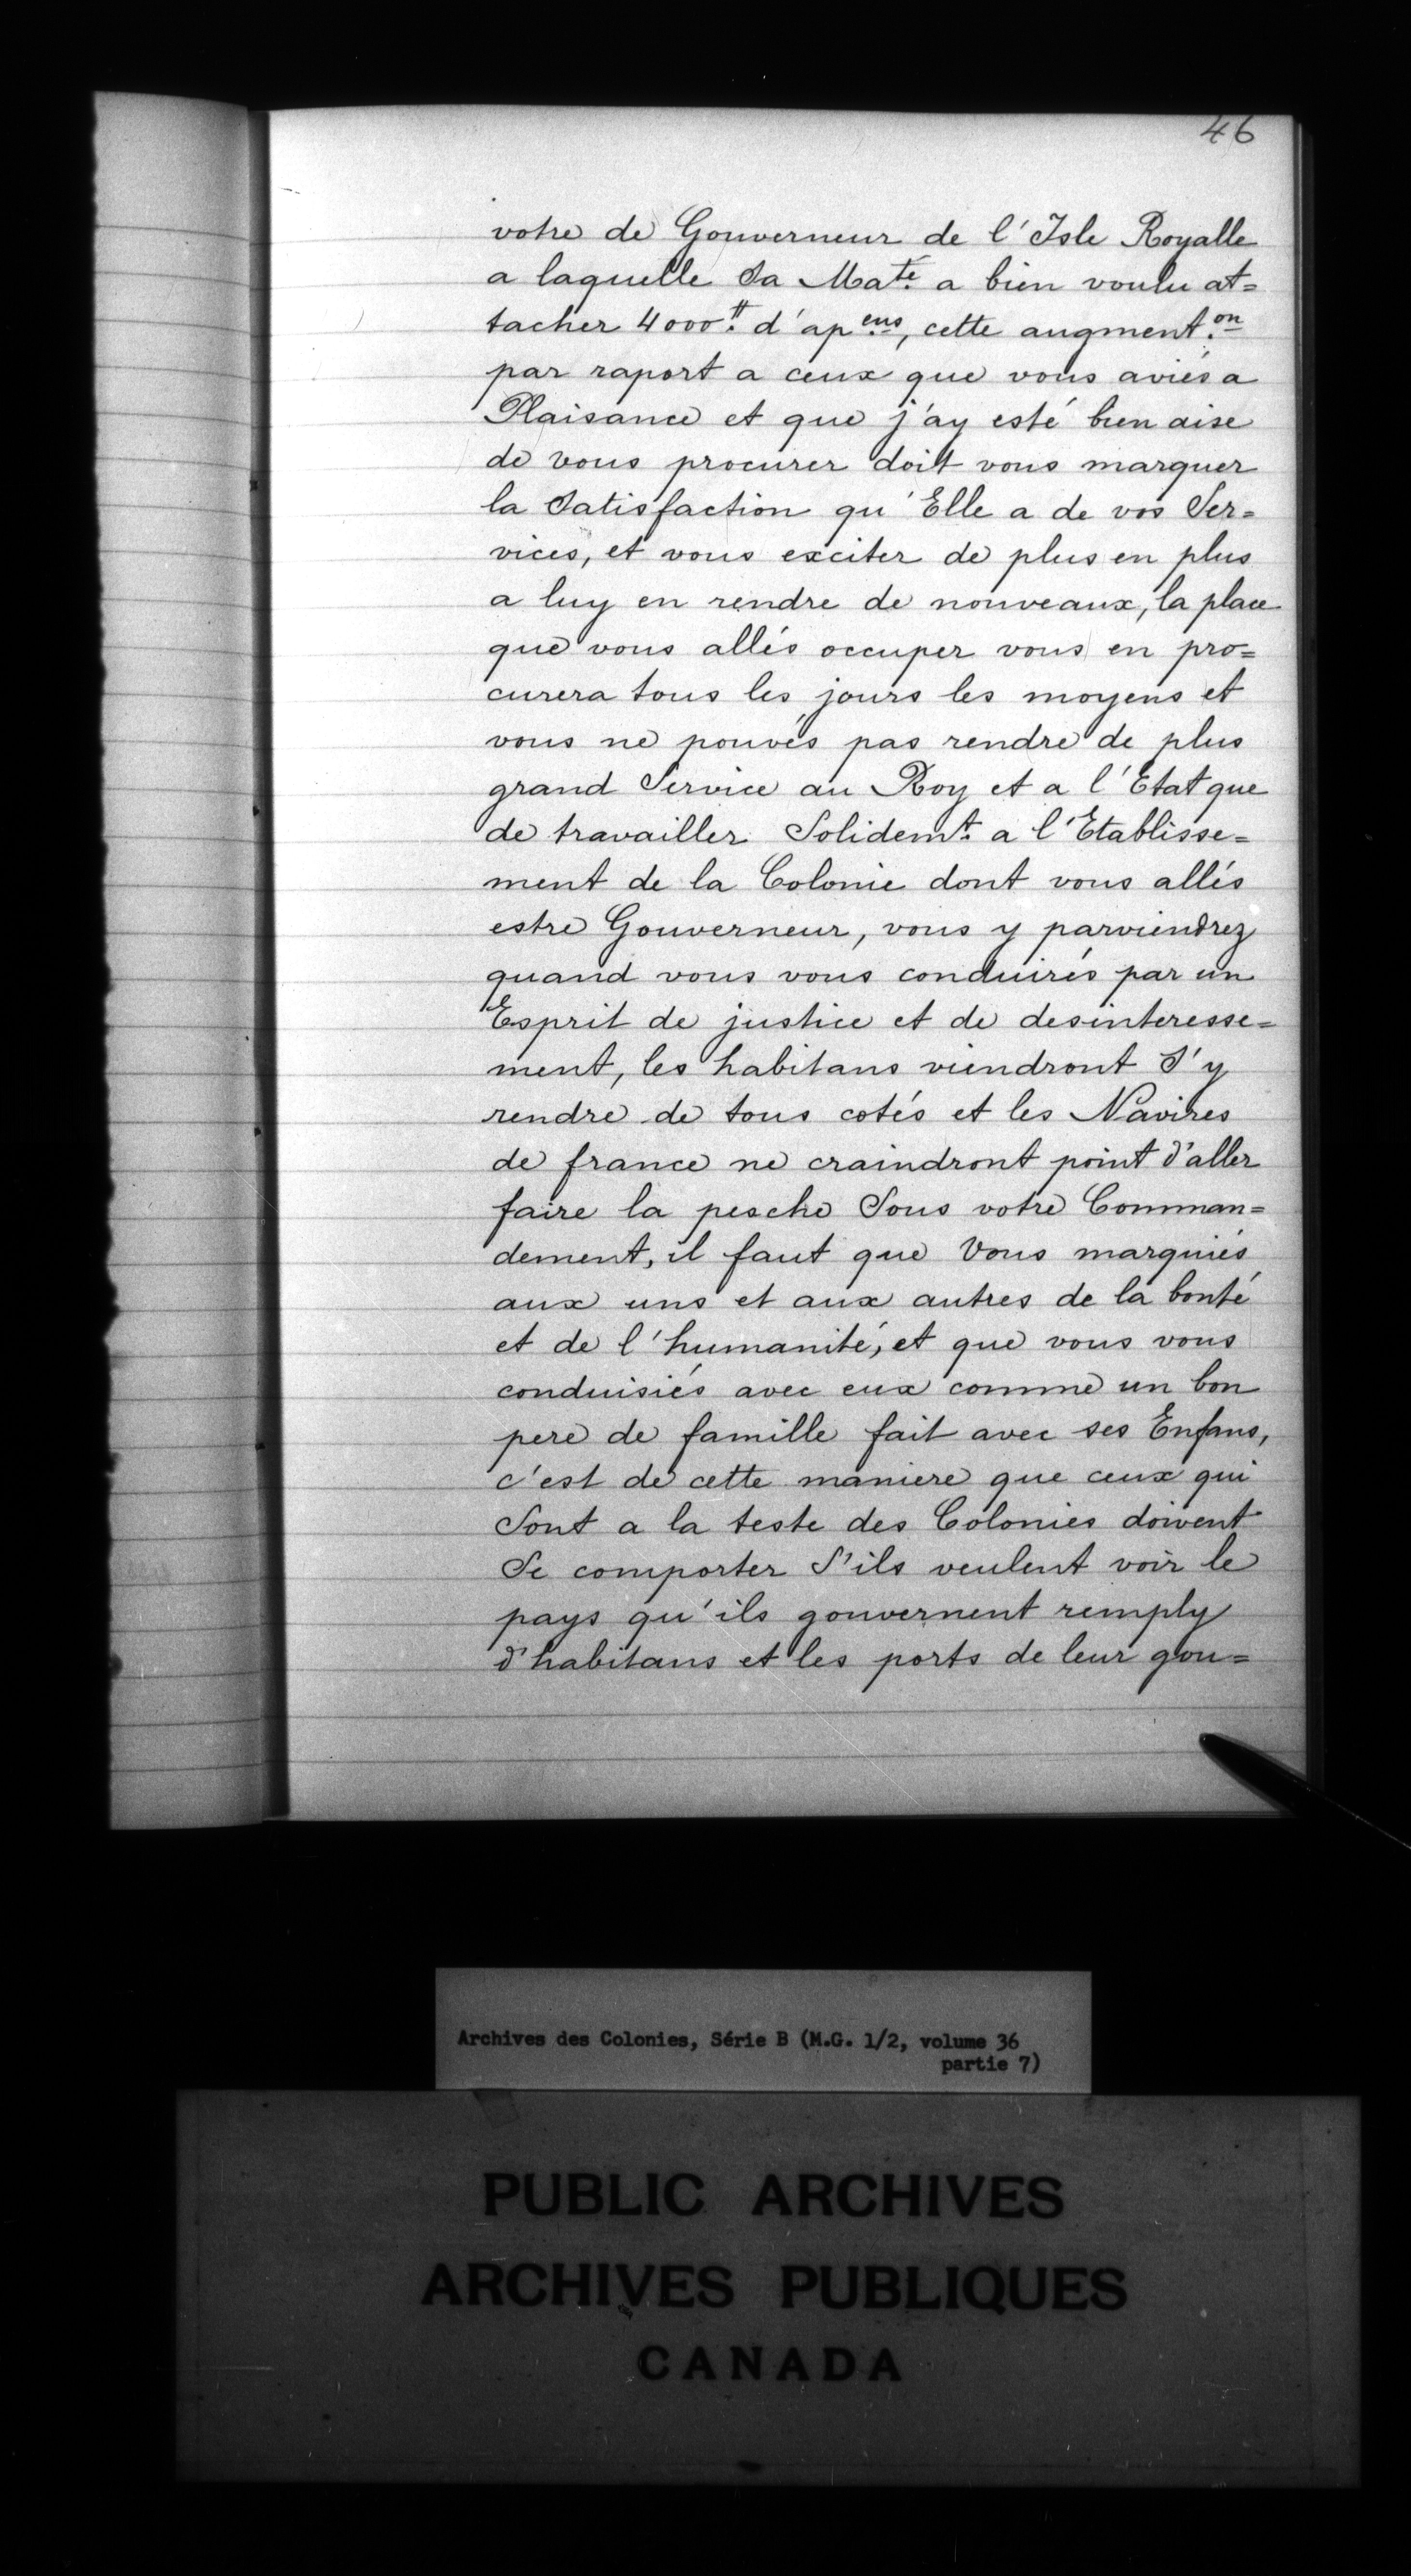 46
votre de Gouverneur de l'Isle Royalle
a laquelle Sa Maté. a bien voulu at=
tacher 4000tt. d'apens, cette augment.on
par raport a ceux que vous aviés a
Plaisance et que j'ay esté bien aise
de vous procurer doit vous marquer
la Satisfaction qu'Elle a de vos Ser=
vices, et vous exciter de plus en plus
a luy en rendre de nouveaux, la place
que vous allés occuper vous en pro=
curera tous les jours les moyens et
vous ne pouvés pas rendre de plus
grand Service au Roy et a l'Etat que
de travailler Solidemt. a l'Etablisse=
ment de la Colonie dont vous allés
estre Gouverneur, vous y parviendrez
quand vous vous conduirés par un
Esprit de justice et de desinteresse=
ment, les habitans viendront S'y
rendre de tous cotés et les Navires
de france ne craindront point d'aller
faire la pesche Sous votre Comman=
dement, il faut que Vous marquiés
aux uns et aux autres de la bonté
et de l'humanité, et que vous vous
conduisiés avec eux comme un bon
pere de famille fait avec ses Enfans,
c'est de cette maniere que ceux qui
Sont a la teste des Colonies doivent
Se comporter S'ils veulent voir le
pays qu'ils gouvernent remply
d'habitans et les ports de leur gou=
Archives des Colonies, Série B (M.G. 1/2, volume 36
partie 7)
PUBLIC ARCHIVES
ARCHIVES PUBLIQUES
CANADA